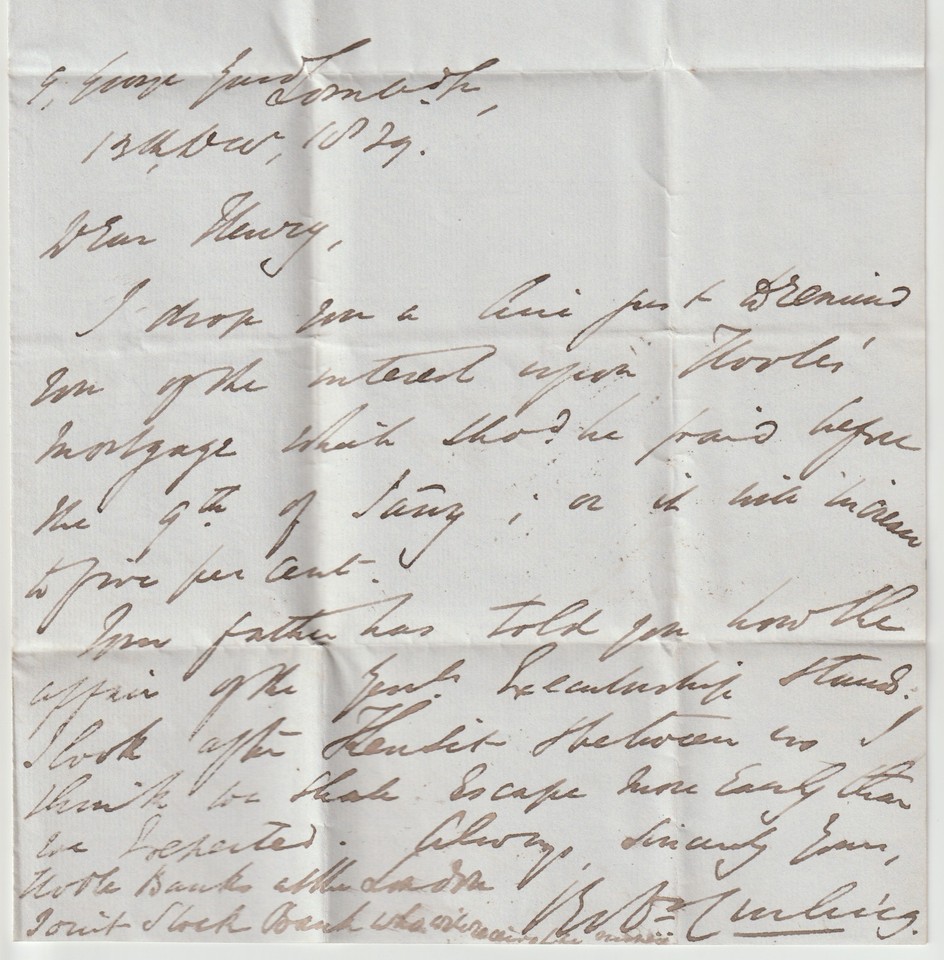 9, George Yard Lombd. St,
13th, Decr, 1839.
Dear Henry,
I drop you a line just to remind
you of the interest upon Hoole's
mortgage which shod. be paid before
the 9th of Jany ; or it will increase
to five per cent.
Your father has told you how the
affair of the Executorship stands.
I look after & between us I
think we shall escape more easily than
we expected. Always, sincerely yours,
Hoole Banks at the London
Joint Stock Bank who will receive the
Curling.